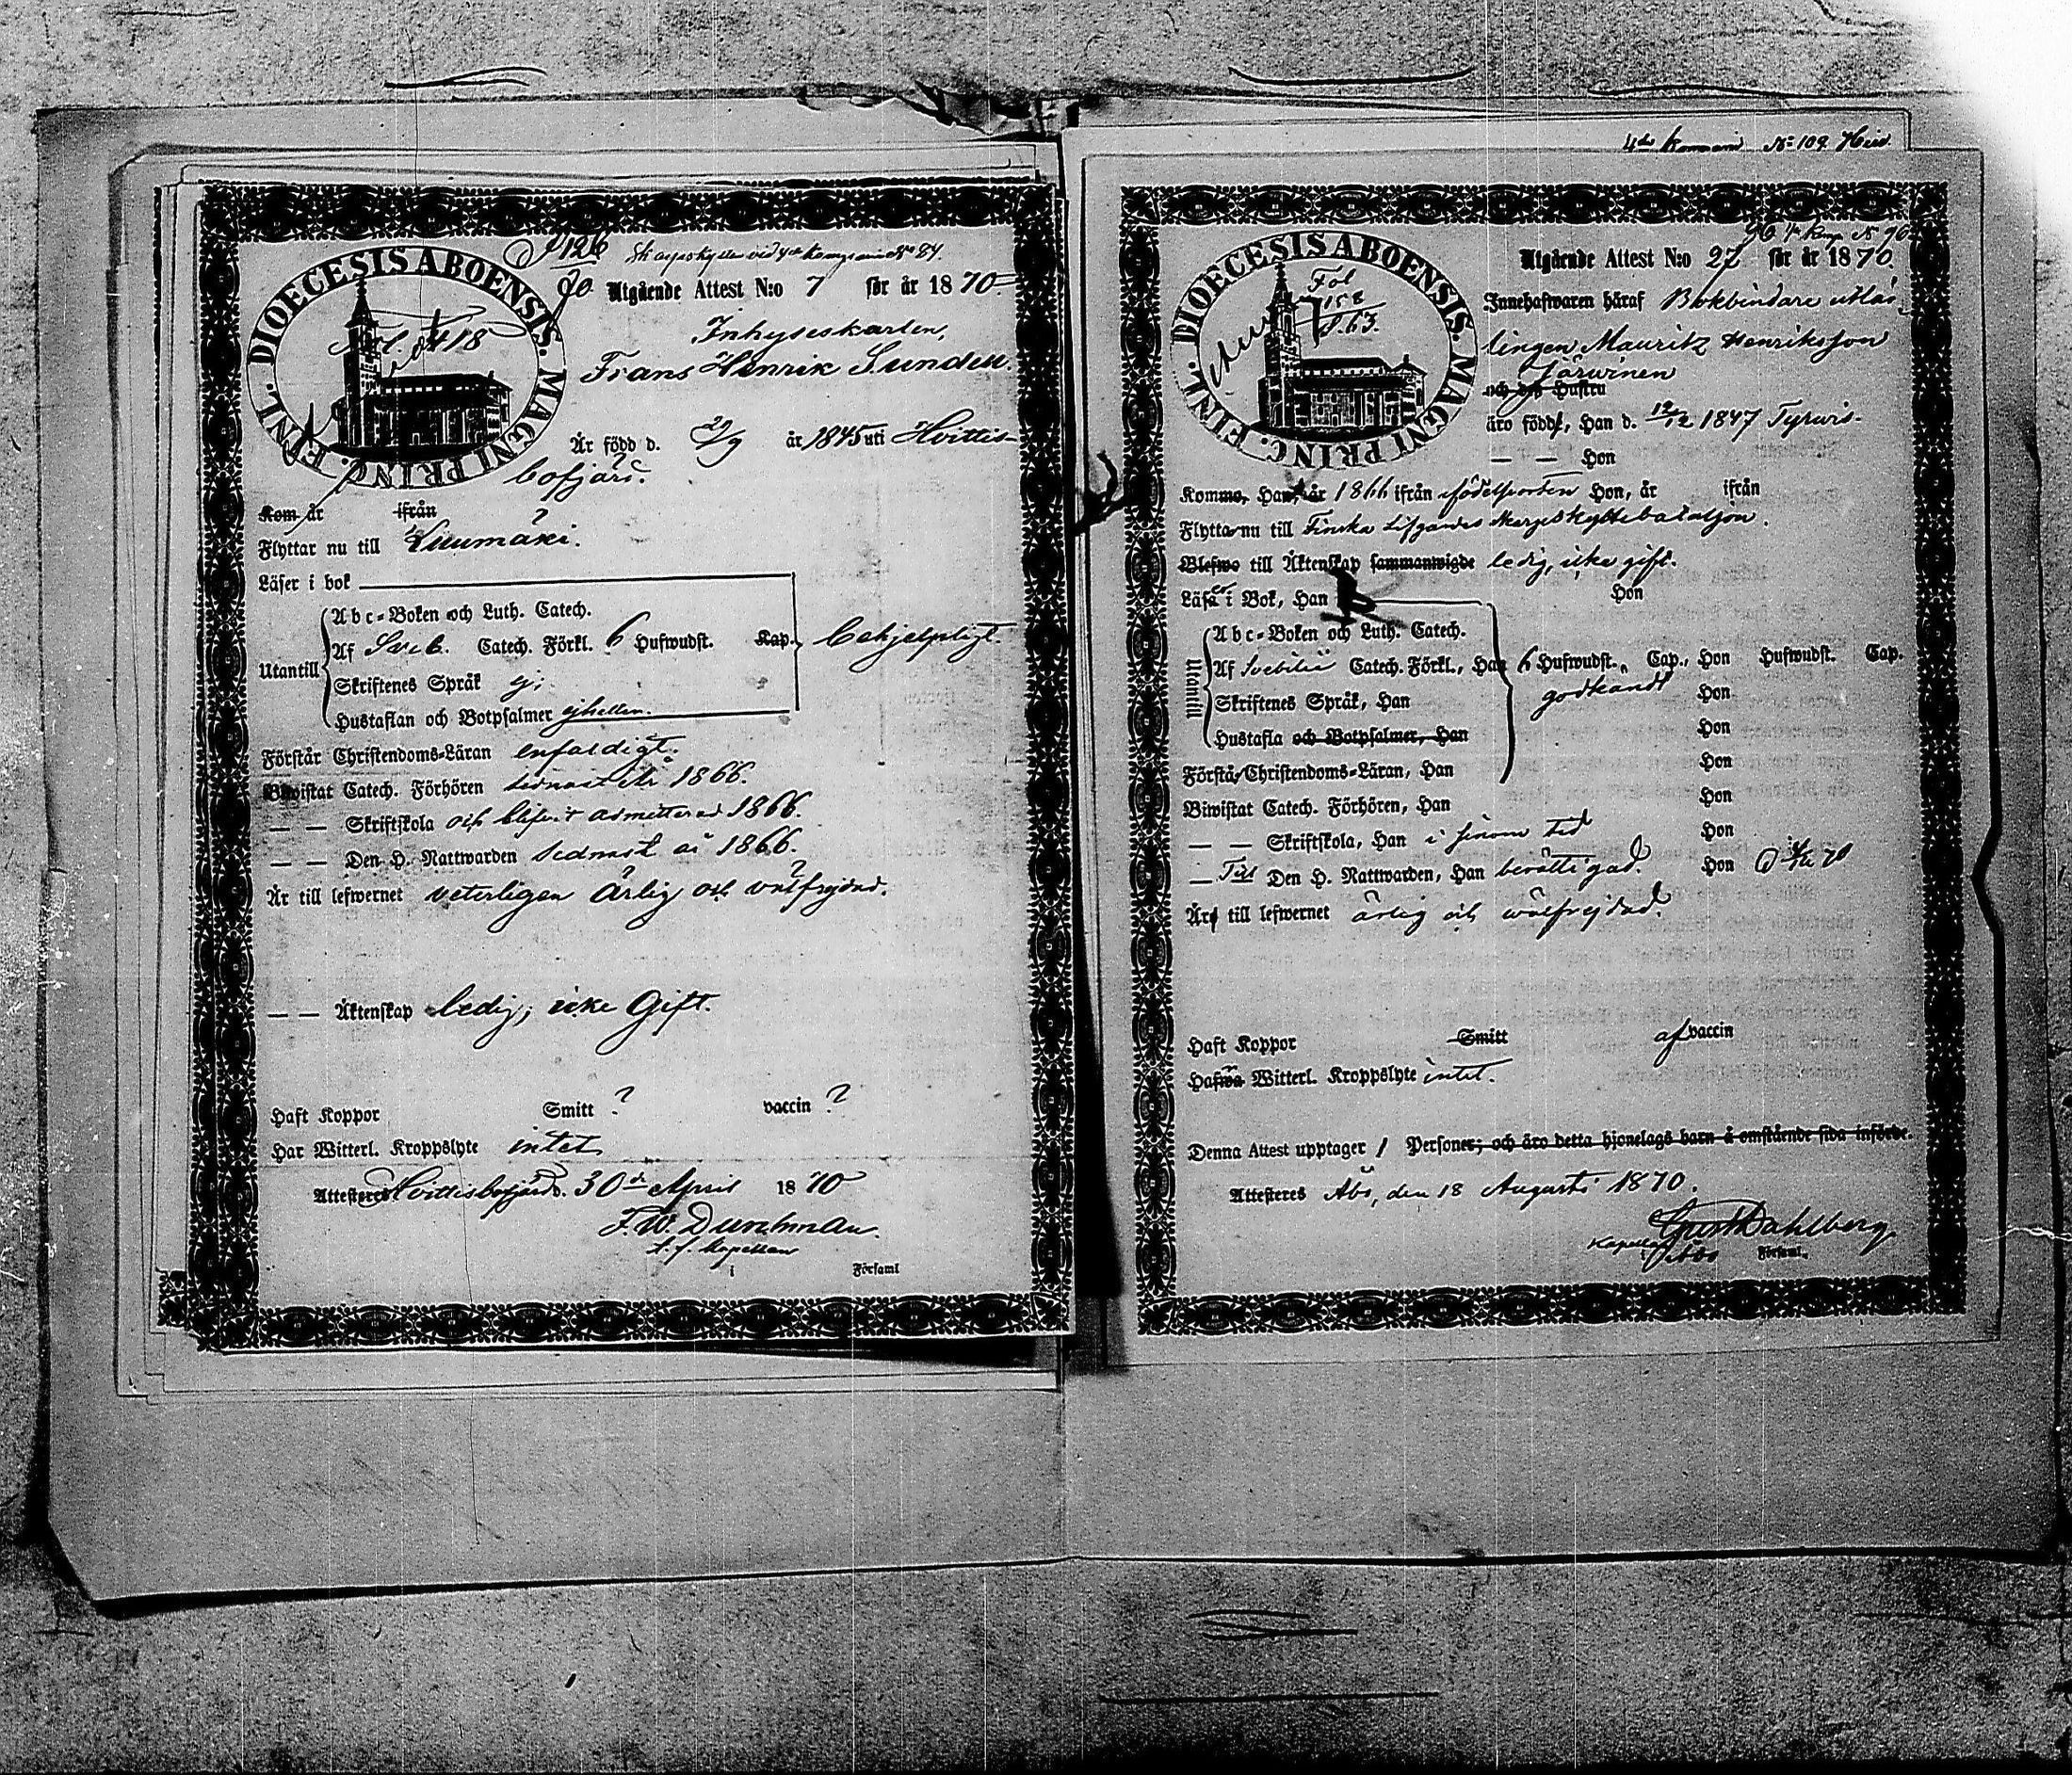 DIOECESIS ABOENSIS. MAGNI PRINC. FINL.
Fol. 418
P 126
90
Skarpskytten vid 4de kompaniet № 84.
Utgående Attest N:o 7 för år 1870
Inhyseskarlen,
Frans Henrik Sundell.
Är född d. 29/9 år 1845 uti Hvittis-
bofjärd.
Kom år ifrån
Flyttar nu till Luumäki.
Läser i bok
Utantill
Abc-Boken och Luth. Catech.
Af Sveb. Catech. Förkl. 6 Hufwudst. Kap. behjelpligt.
Skriftenes Språk ej;
Hustaflan och Botpsalmer ejheller.
Förstår Christendoms-Läran enfaldigt.
Biwistat Catech. Förhören sednast år 1866.
— — Skriftskola och blifvit admitterad 1866.
— — Den H. Nattwarden sednast år 1866.
Är till lefwernet veterligen ärlig och välfrejdad.
— — Äktenskap ledig, icke Gift.
Haft Koppor Smitt ? vaccin ?
Har Witterl. Kroppslyte intet
Attesteres Hvittisbofjärd. 30de April 1870
F. W. Dunkman.
t. f. Kapellan
i Församl
4de Kompani № 109
DIOECESIS ABOENSIS. MAGNI PRINC. FINL.
Fol
158
S. 63.
96 4de Komp № 90
Utgående Attest N:o 27 för år 1870.
Innehafwaren häraf Bokbindare utlär-
lingen Mauritz Henriksson
Järwinen
och des Hustru
äro födde, Han d. 12/12 1847 Tyrvis.
— — Hon
Kommo, Han, år 1866 ifrån födelseorten Hon, år ifrån
Flytta nu till Finska Lifgardes Skarpskyttebataljon.
Blefwo till Äktenskap sammanwigde ledig, icke gift.
Läsa i Bok, Han Hon
Utantill
Abc-Boken och Luth. Catech.
Af Svebilii Catech. Förkl., Han 6 Hufwudst., Cap., Hon Hufwudst. Cap.
Skriftenes Språk, Han godkändt Hon
Hustafla och Botpsalmer, Han Hon
Förstå Christendoms-Läran, Han Hon
Biwistat Catech. Förhören, Han Hon
— — Skriftskola, Han i sinom tid Hon
— Till Den H. Nattwarden, Han berättigad. Hon
Äro till lefwernet ärlig och wälfrejdad.
Haft Koppor Smitt af vaccin
Hafwa Witterl. Kroppslyte intet.
Denna Attest upptager 1 Personer; och äro detta hjonelags barn å omstående sida införde.
Attesteres Åbo, den 18 Augusti 1870.
Gust Dahlberg
Kapellan
i Åbo Församl.